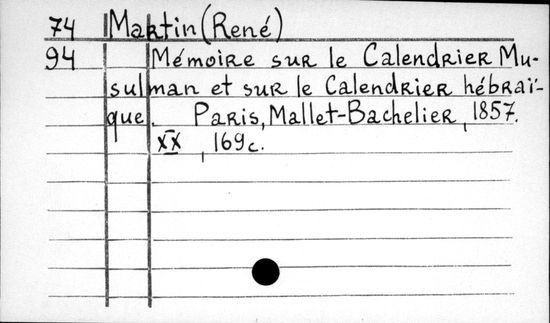 74 Martin (René)
94 Mémoire sur le Calendrier Mu-
sulman et sur le Calendrier hébraï-
que. Paris, Mallet-Bachelier, 1857.
XX, 169c.